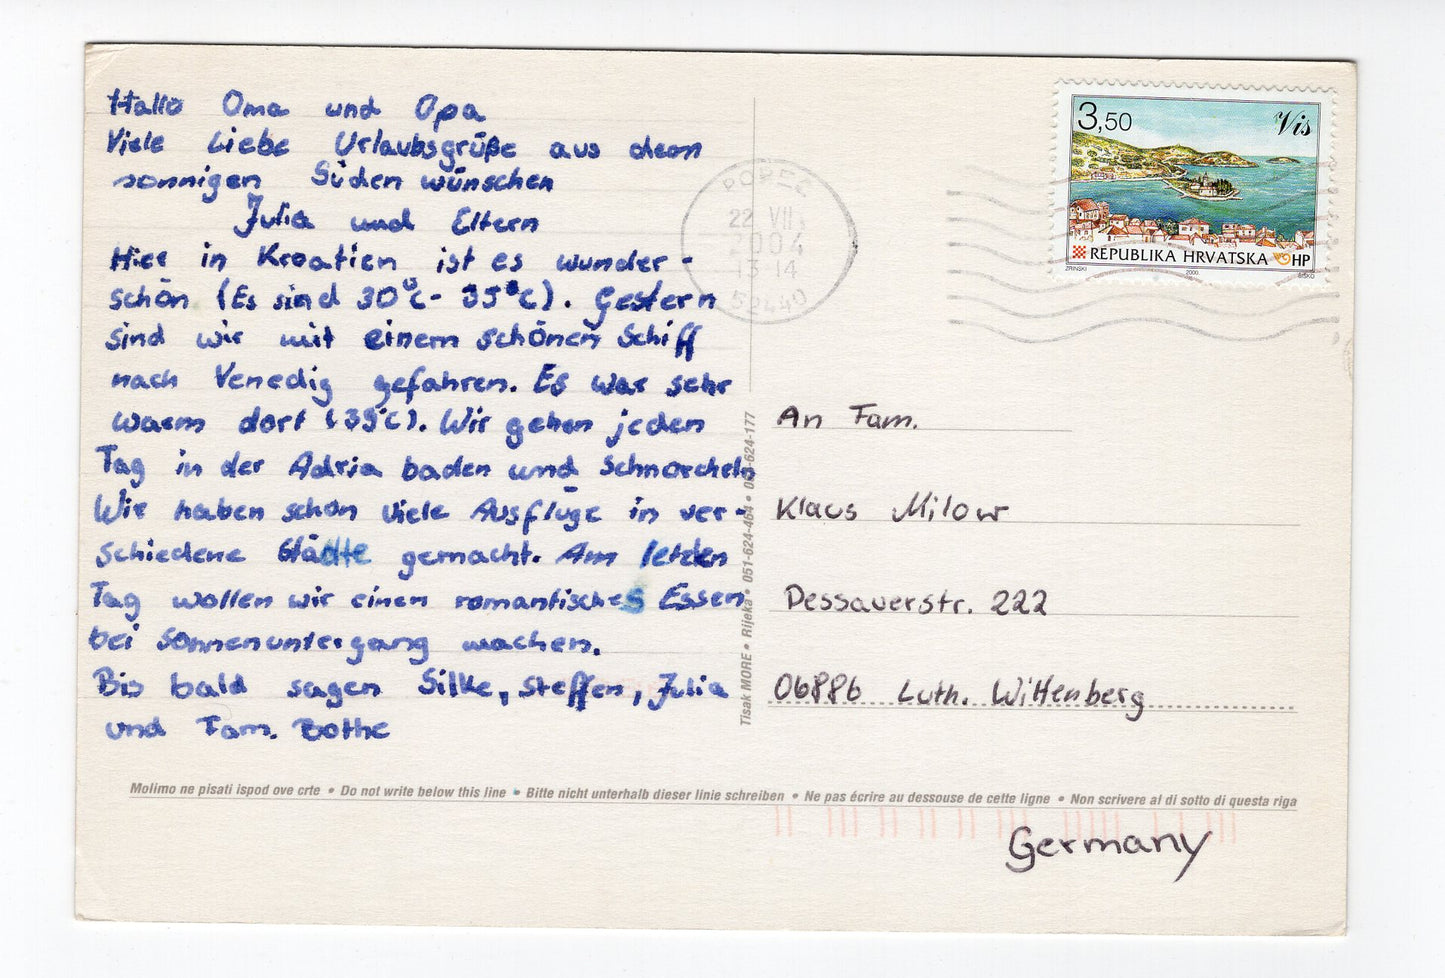 Hallo Oma und Opa
Viele Liebe Urlaubsgrüße aus dem
sonnigen Süden wünschen
Julia und Eltern
Hier in Kroatien ist es wunder-
schön (Es sind 30°C - 35°C). Gestern
sind wir mit einem schönen Schiff
nach Venedig gefahren. Es war sehr
warm dort (39°C). Wir gehen jeden
Tag in der Adria baden und schnorcheln
Wir haben schon viele Ausflüge in ver-
schiedene Städte gemacht. Am letzten
Tag wollen wir einen romantisches Essen
bei Sonnenuntergang machen.
Bis bald sagen Silke, Steffen, Julia
und Fam. Bothe
POREČ
22 VII
2004
13 14
52440
3,50
Vis
REPUBLIKA HRVATSKA HP
ZRINSKI 2000. BISKO
An Fam.
Klaus Milow
Dessauerstr. 222
06886 Luth. Wittenberg
Germany
Tisak MORE • Rijeka • 051-624-464 • 051-624-177
Molimo ne pisati ispod ove crte • Do not write below this line • Bitte nicht unterhalb dieser linie schreiben • Ne pas écrire au dessouse de cette ligne • Non scrivere al di sotto di questa riga